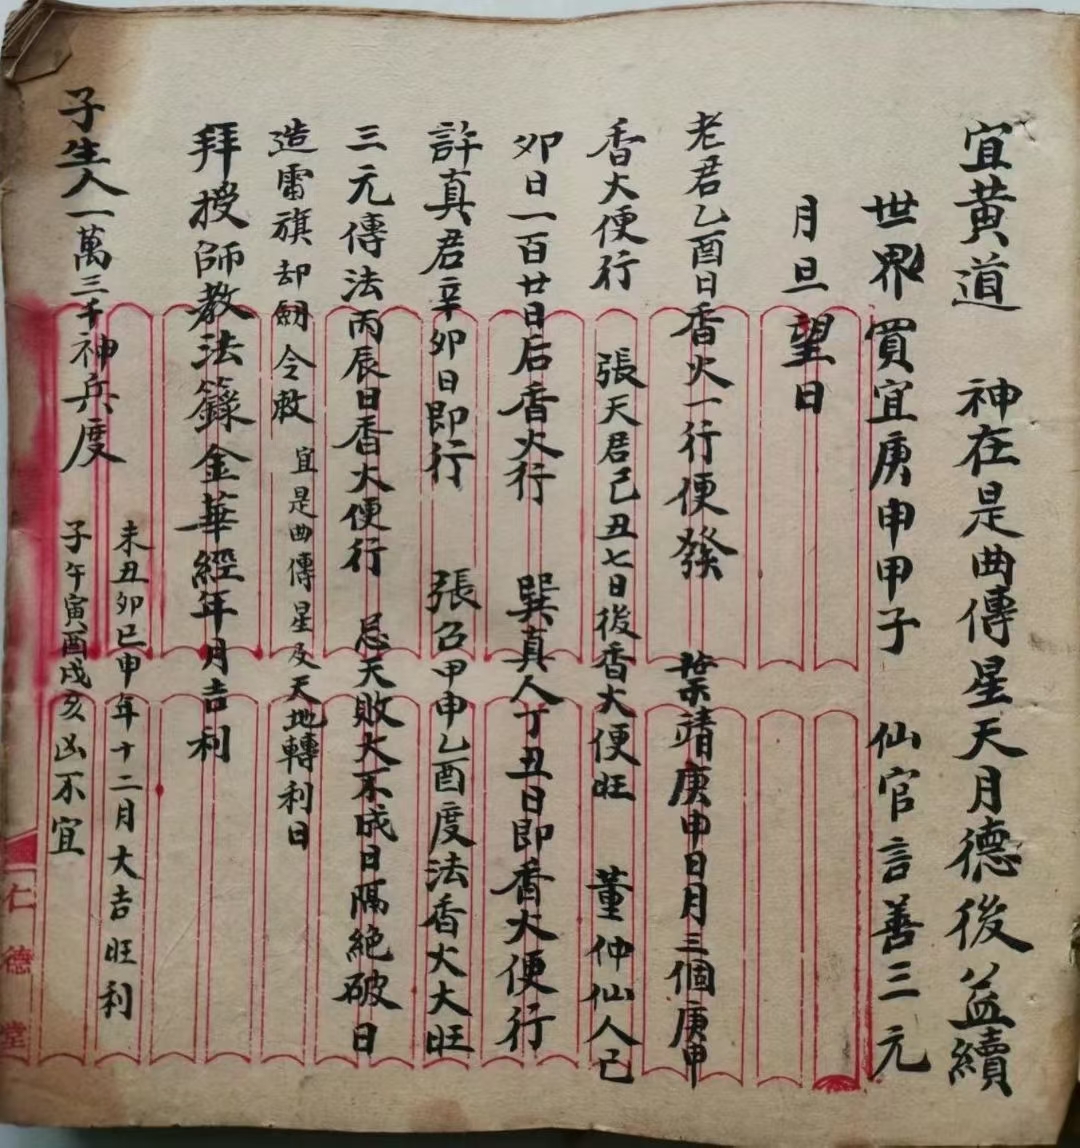 宜黄道　神在是曲傳星天月德後益續
世界買宜庚申甲子　仙官言善三元
月旦望日
老君乙酉日香火一行便發　葉靖庚申日月三個庚申
香火便行　張天君己丑七日後香火便旺　董仲仙人己
卯日一百廿日后香火行　巽真人丁丑日即香火便行
許真君辛卯日即行　張召甲申乙酉度法香火大旺
三元傳法丙辰日香火便行　忌天敗大不成日隔絶破日
造雷旗却劒令敕　宜是曲傳星及天地轉利日
拜授師教法籙金華經年月吉利
子生人一萬三千神兵度
未丑卯巳申年十二月大吉旺利
子午寅酉戌亥凶不宜
仁德堂